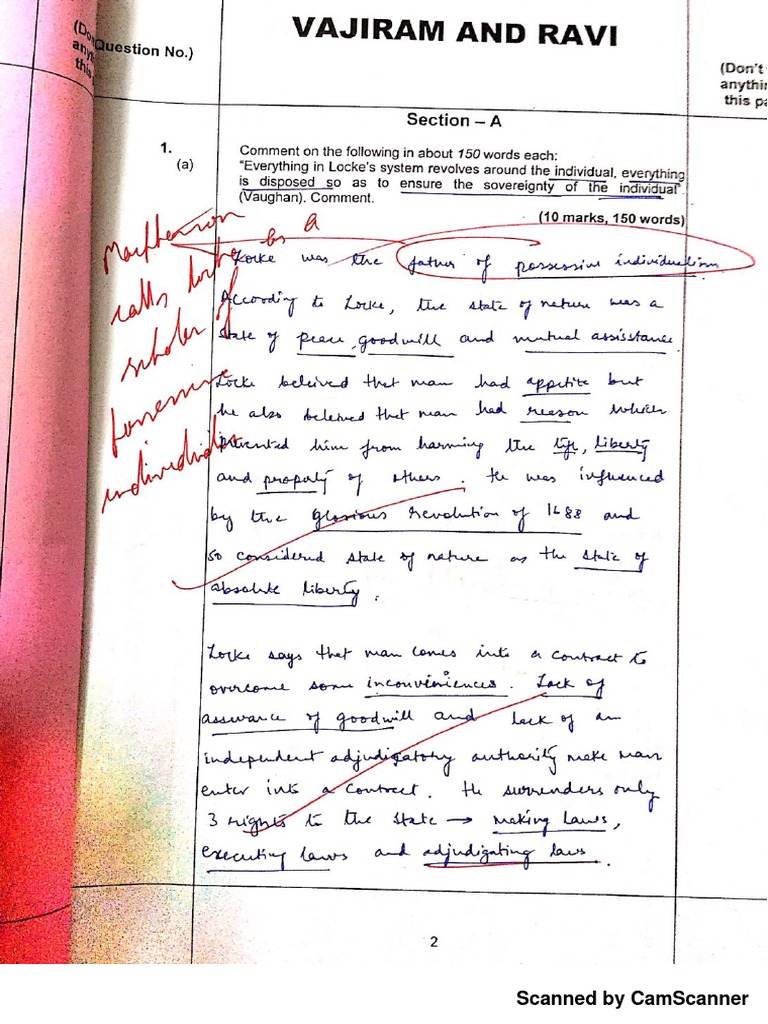 VAJIRAM AND RAVI
(Do
Question No.)
any
this
(Don't
anythin
this pa
Section – A
1.
Comment on the following in about 150 words each:
(a)
"Everything in Locke's system revolves around the individual, everything
is disposed so as to ensure the sovereignty of the individual"
(Vaughan). Comment.
(10 marks, 150 words)
Macpherson
calls locke as a
scholar of
individualis
Locke was the father of possessive individualism
According to Locke, the state of nature was a
state of peace, goodwill and mutual assisstance.
Locke beleived that man had appetite but
he also beleived that man had reason which
prevented him from harming the life, liberty
and property of others. He was influenced
by the Glorious revolution of 1688 and
so considered state of nature as the state of
absolute liberty.
Locke says that man comes into a contract to
overcome some inconveniences. Lack of
assurance of goodwill and lack of an
independent adjudigatory authority make man
enter into a contract. He surrenders only
3 rights to the state → making laws,
executing laws and adjudigating laws.
2
Scanned by CamScanner